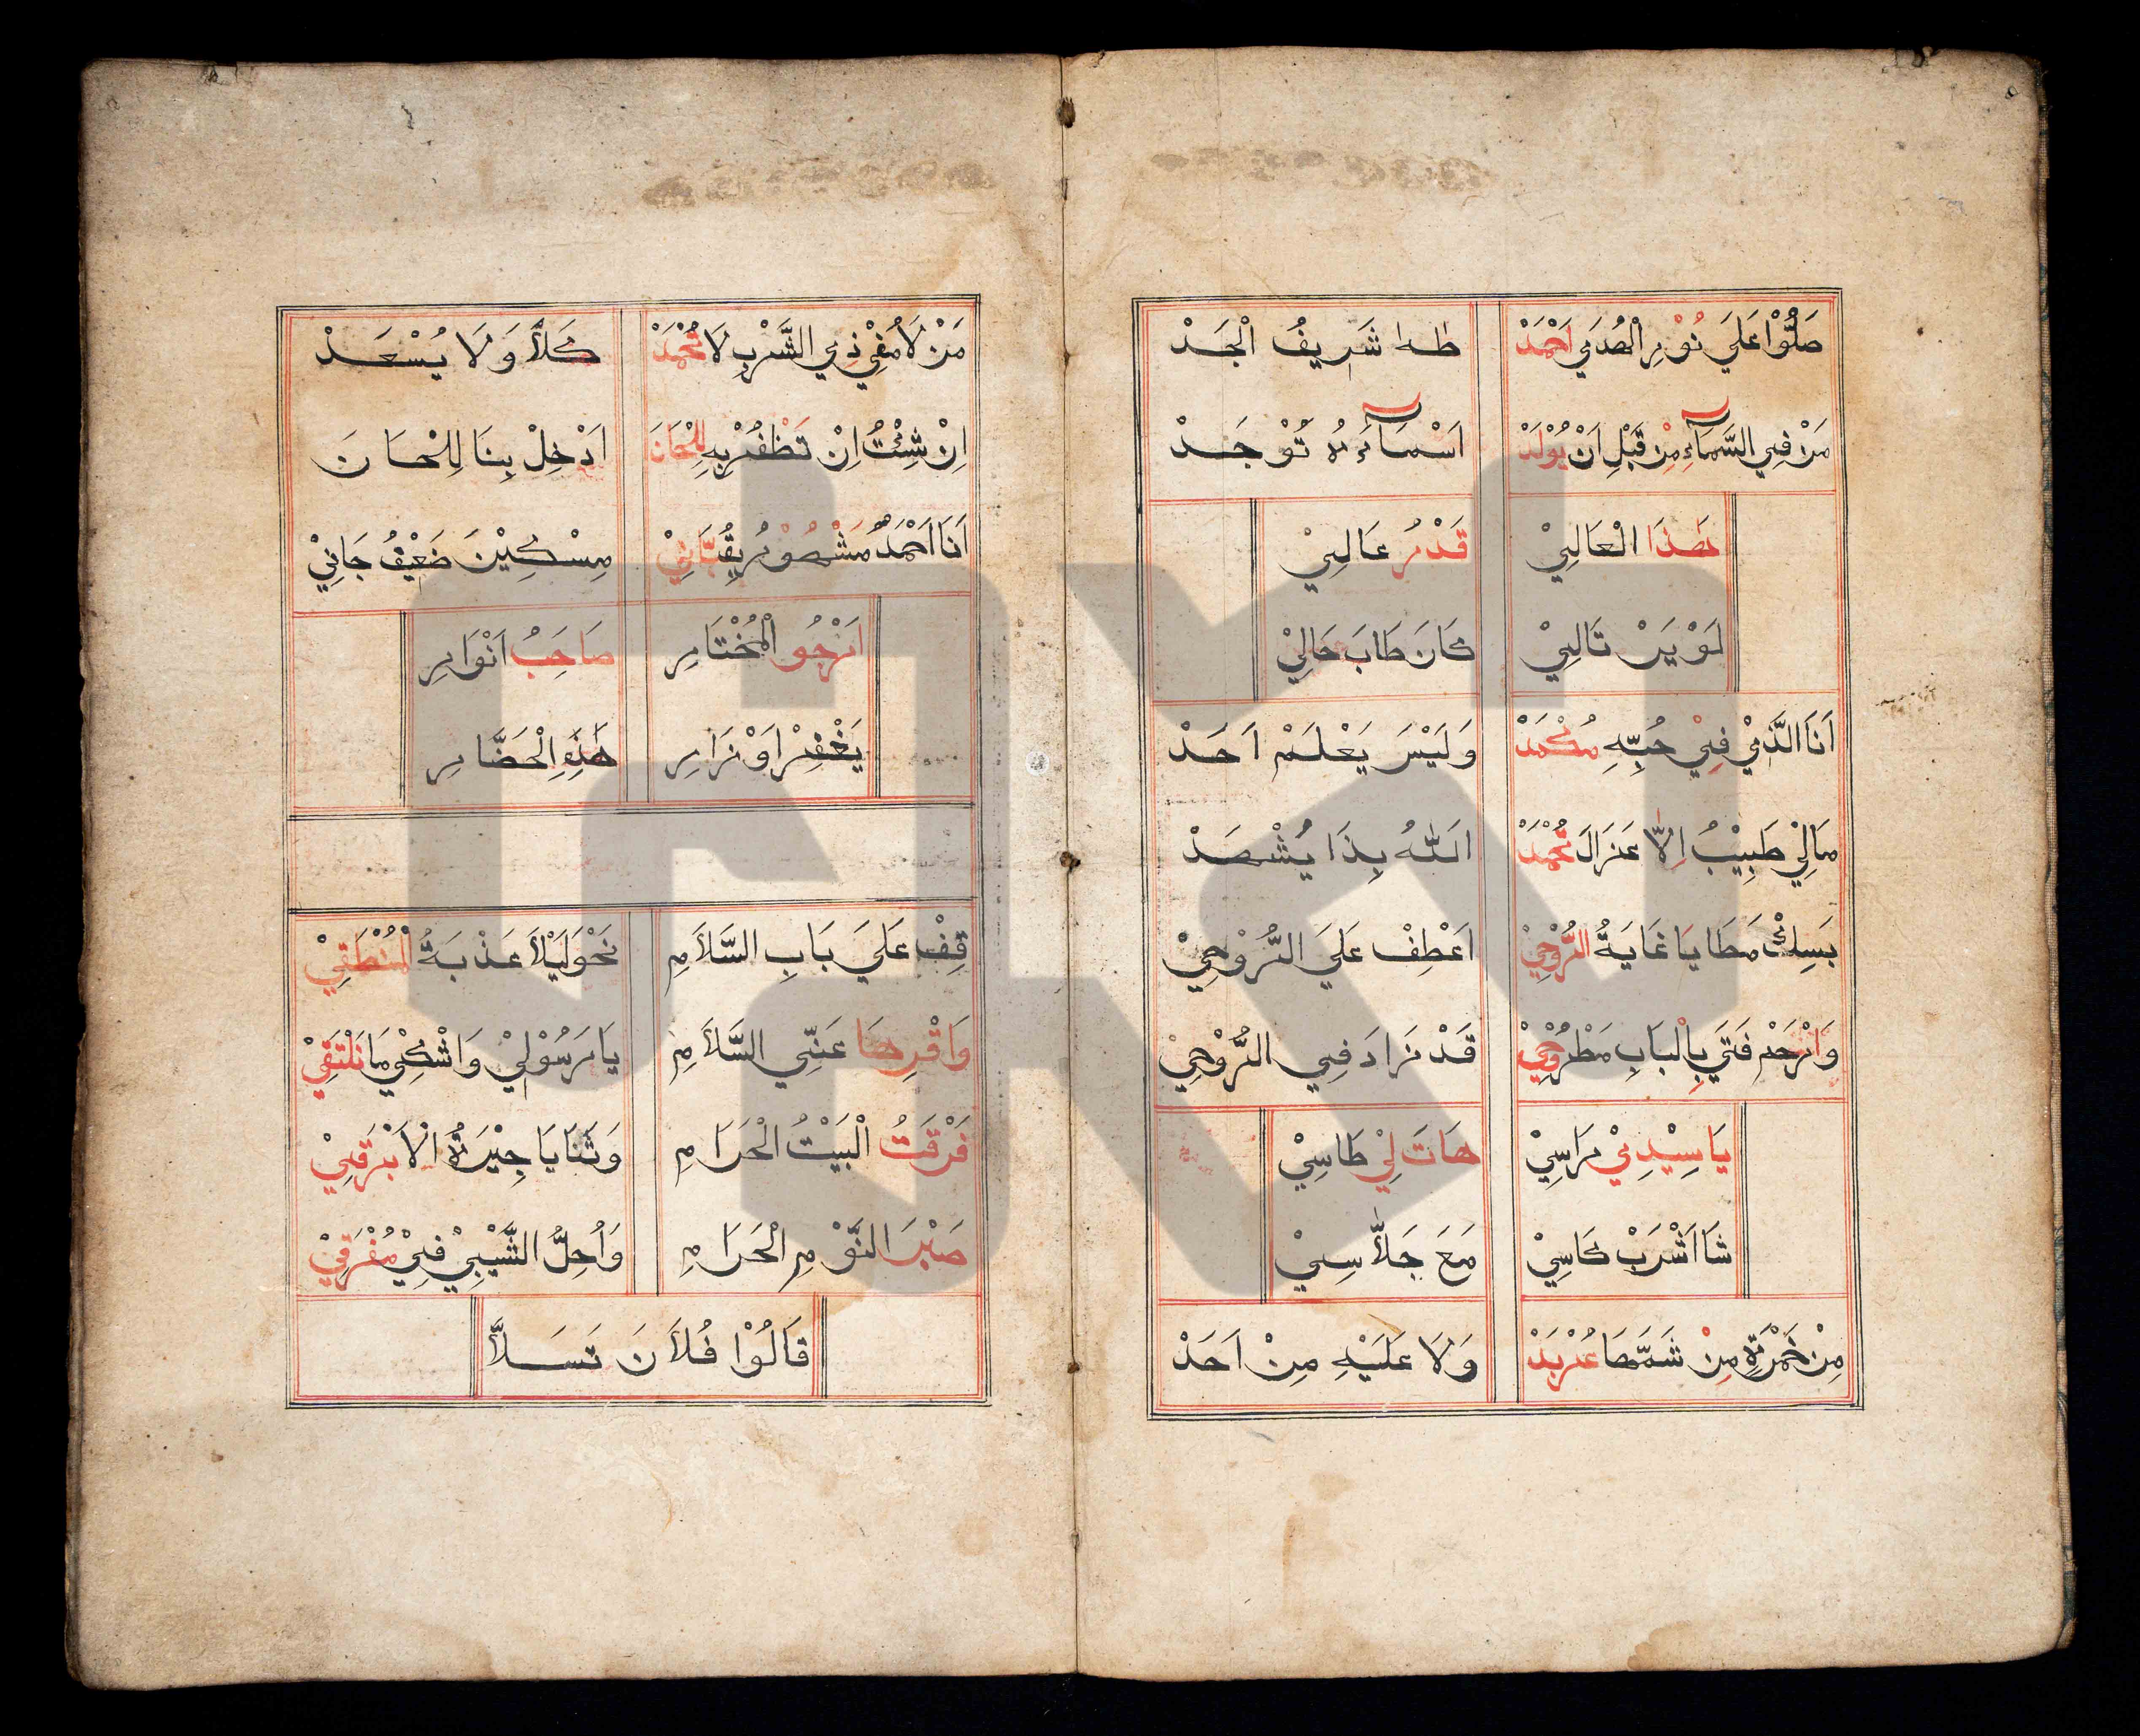 صَلُّوْا عَلَيَ نُوْرِ الْهُدَيِ اَحْمَدْ طه شَرِيفُ الْجَدْ
مَنْ فِي السَّمَآءِ مِنْ قَبْلِ اَنْ يُوْلَدْ اَسْمَآءُهُ تُوْجَدْ
هٰهذَا الْعَالِيْ قَدْرُ عَالِيْ
لَوْ يَرْتَالِيْ كَانَ طَابَ حَالِيْ
اَنَا الَّذِيْ فِيْ حُبِّهِ مُكْمَدْ وَلَيْسَ يَعْلَمْ اَحَدْ
مَالِيْ طَبِيْبُ اِلَّا غَزَالَ مُحَمَّدْ اَللّٰهُ بِذَا يُشْهَدْ
بَسِكْ مَطَا يَا غَايَةُ الرُّوْحِيْ اَعْطِفْ عَلَيَ الرُّوْحِيْ
وَارْحَمْ فَتَيَ بِالْبَابِ مَطْرُوْحِيْ قَدْ زَادَ فِي الرُّوْحِيْ
يَا سِيْدِيْ رَاسِيْ هَاتَ لِيْ طَاسِيْ
شَا اَشْرَبْ كَاسِيْ مَعَ جَلَّاسِيْ
مِنْ خَمْرَةٍ مِنْ شَمَّهَا عُرْبَدْ وَلَا عَلَيْهِ مِنْ اَحَدْ
مَنْ لَامَنِيْ فِيْ ذِي الشَّرْبِ لَا مُحَمَّدْ كَلَّا وَلَا يُسْعَدْ
اِنْ شِئْتُ اِنْ تَظْفُرْ بِهِ لِلْحَانَ اَدْخِلْ بِنَا لِلْحَانَ
اَنَا اَحْمَدُ مَشْهُوْرُ بِقُبَّانِيْ مِسْكِيْنَ ضَعِيْفُ جَانِيْ
اَرْجُو الْمُخْتَارِ صَاحَبُ اَنْوَارِ
يَغْفِرْ اَوْزَارِ هَذِهِ الْحَضَّارِ
قِفْ عَلَيَ بَابِ السَّلَامِ نَحْوَ لَيْلَا عَذْبَةُ الْمَنْطَقِيْ
وَاقْرِهَا عَنِّي السَّلَامِ يَا رَسُوْلِيْ وَاشْكِيْ مَا نَلْتَقِيْ
فَرْقَتُ الْبَيْتُ الْحَرَامِ وَثَنَايَا جِيْرَةُ الْاَبْرَقِيْ
صَيْرَ النَّوْمِ الْحَرَامِ وَاُحِلُّ الشَّيْبِيْ فِيْ مُفْرَقِيْ
قَالُوْا فُلَانَ تَسَلَّا